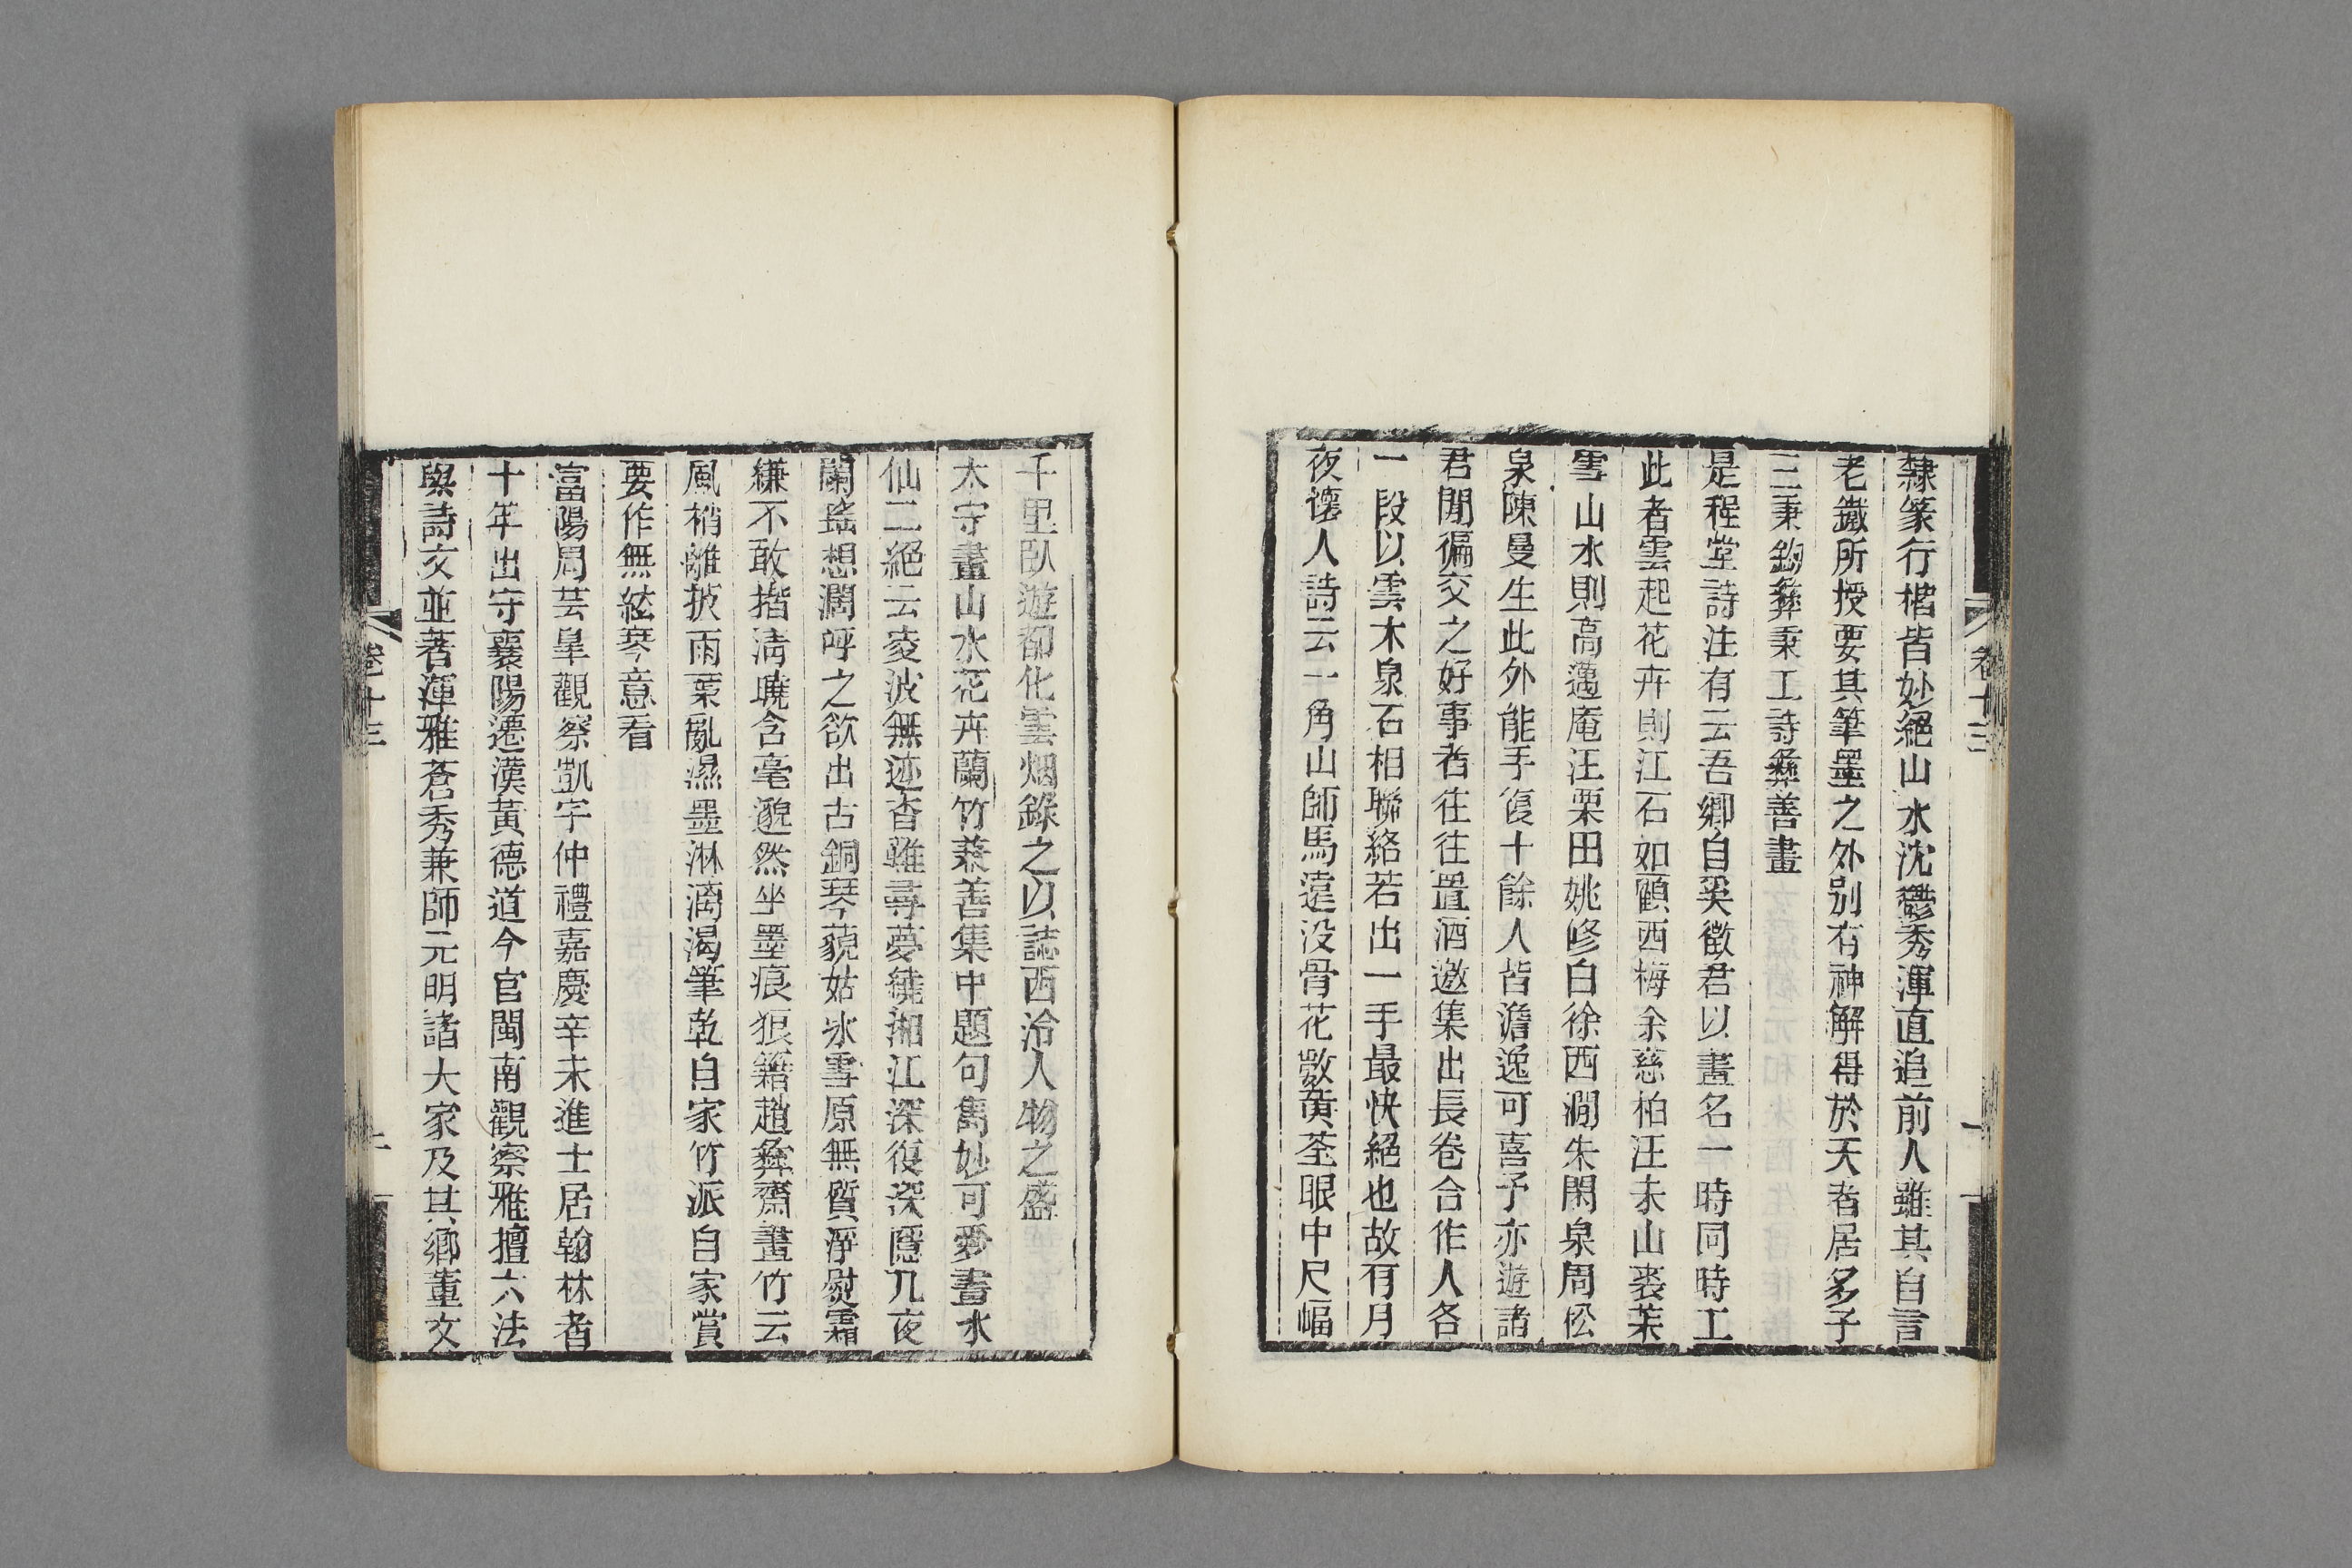 隸篆行楷皆妙絕山水沈鬱秀渾直追前人雖其自言
老鐵所授要其筆墨之外別有神解得於天者居多子
三秉鈞彝秉工詩彝善畫
是程堂詩注有云吾鄉自奚徵君以畫名一時同時工
此者雲起花卉則江石如顧西梅余慈柏汪未山裘茉
雪山水則高邁庵汪栗田姚修白徐西澗朱閑泉周松
泉陳曼生此外能手復十餘人皆澹逸可喜予亦遊諸
君閒徧交之好事者往往置酒邀集出長卷合作人各
一段以雲木泉石相聯絡若出一手最快絕也故有月
夜懷人詩云一角山師馬遠沒骨花斆黄荃眼中尺幅
卷十三
千里臥遊都化雲烟錄之以誌西泠人物之盛
太守畫山水花卉蘭竹兼善集中題句雋妙可愛畫水
仙二絕云凌波無迹杳難尋夢繞湘江深復深隱几夜
闌瑤想濶呼之欲出古銅琴藐姑冰雪原無質淨熨霜
縑不敢揩淸曉含毫邈然坐墨痕狼籍趙彝齋畫竹云
風梢離披雨葉亂濕墨淋漓渴筆乾自家竹派自家賞
要作無絃琴意看
富陽周芸皐觀察凱字仲禮嘉慶辛未進士居翰林者
十年出守襄陽遷漢黃德道今官閩南觀察雅擅六法
與詩文並著渾雅蒼秀兼師元明諸大家及其鄉董文
卷十三